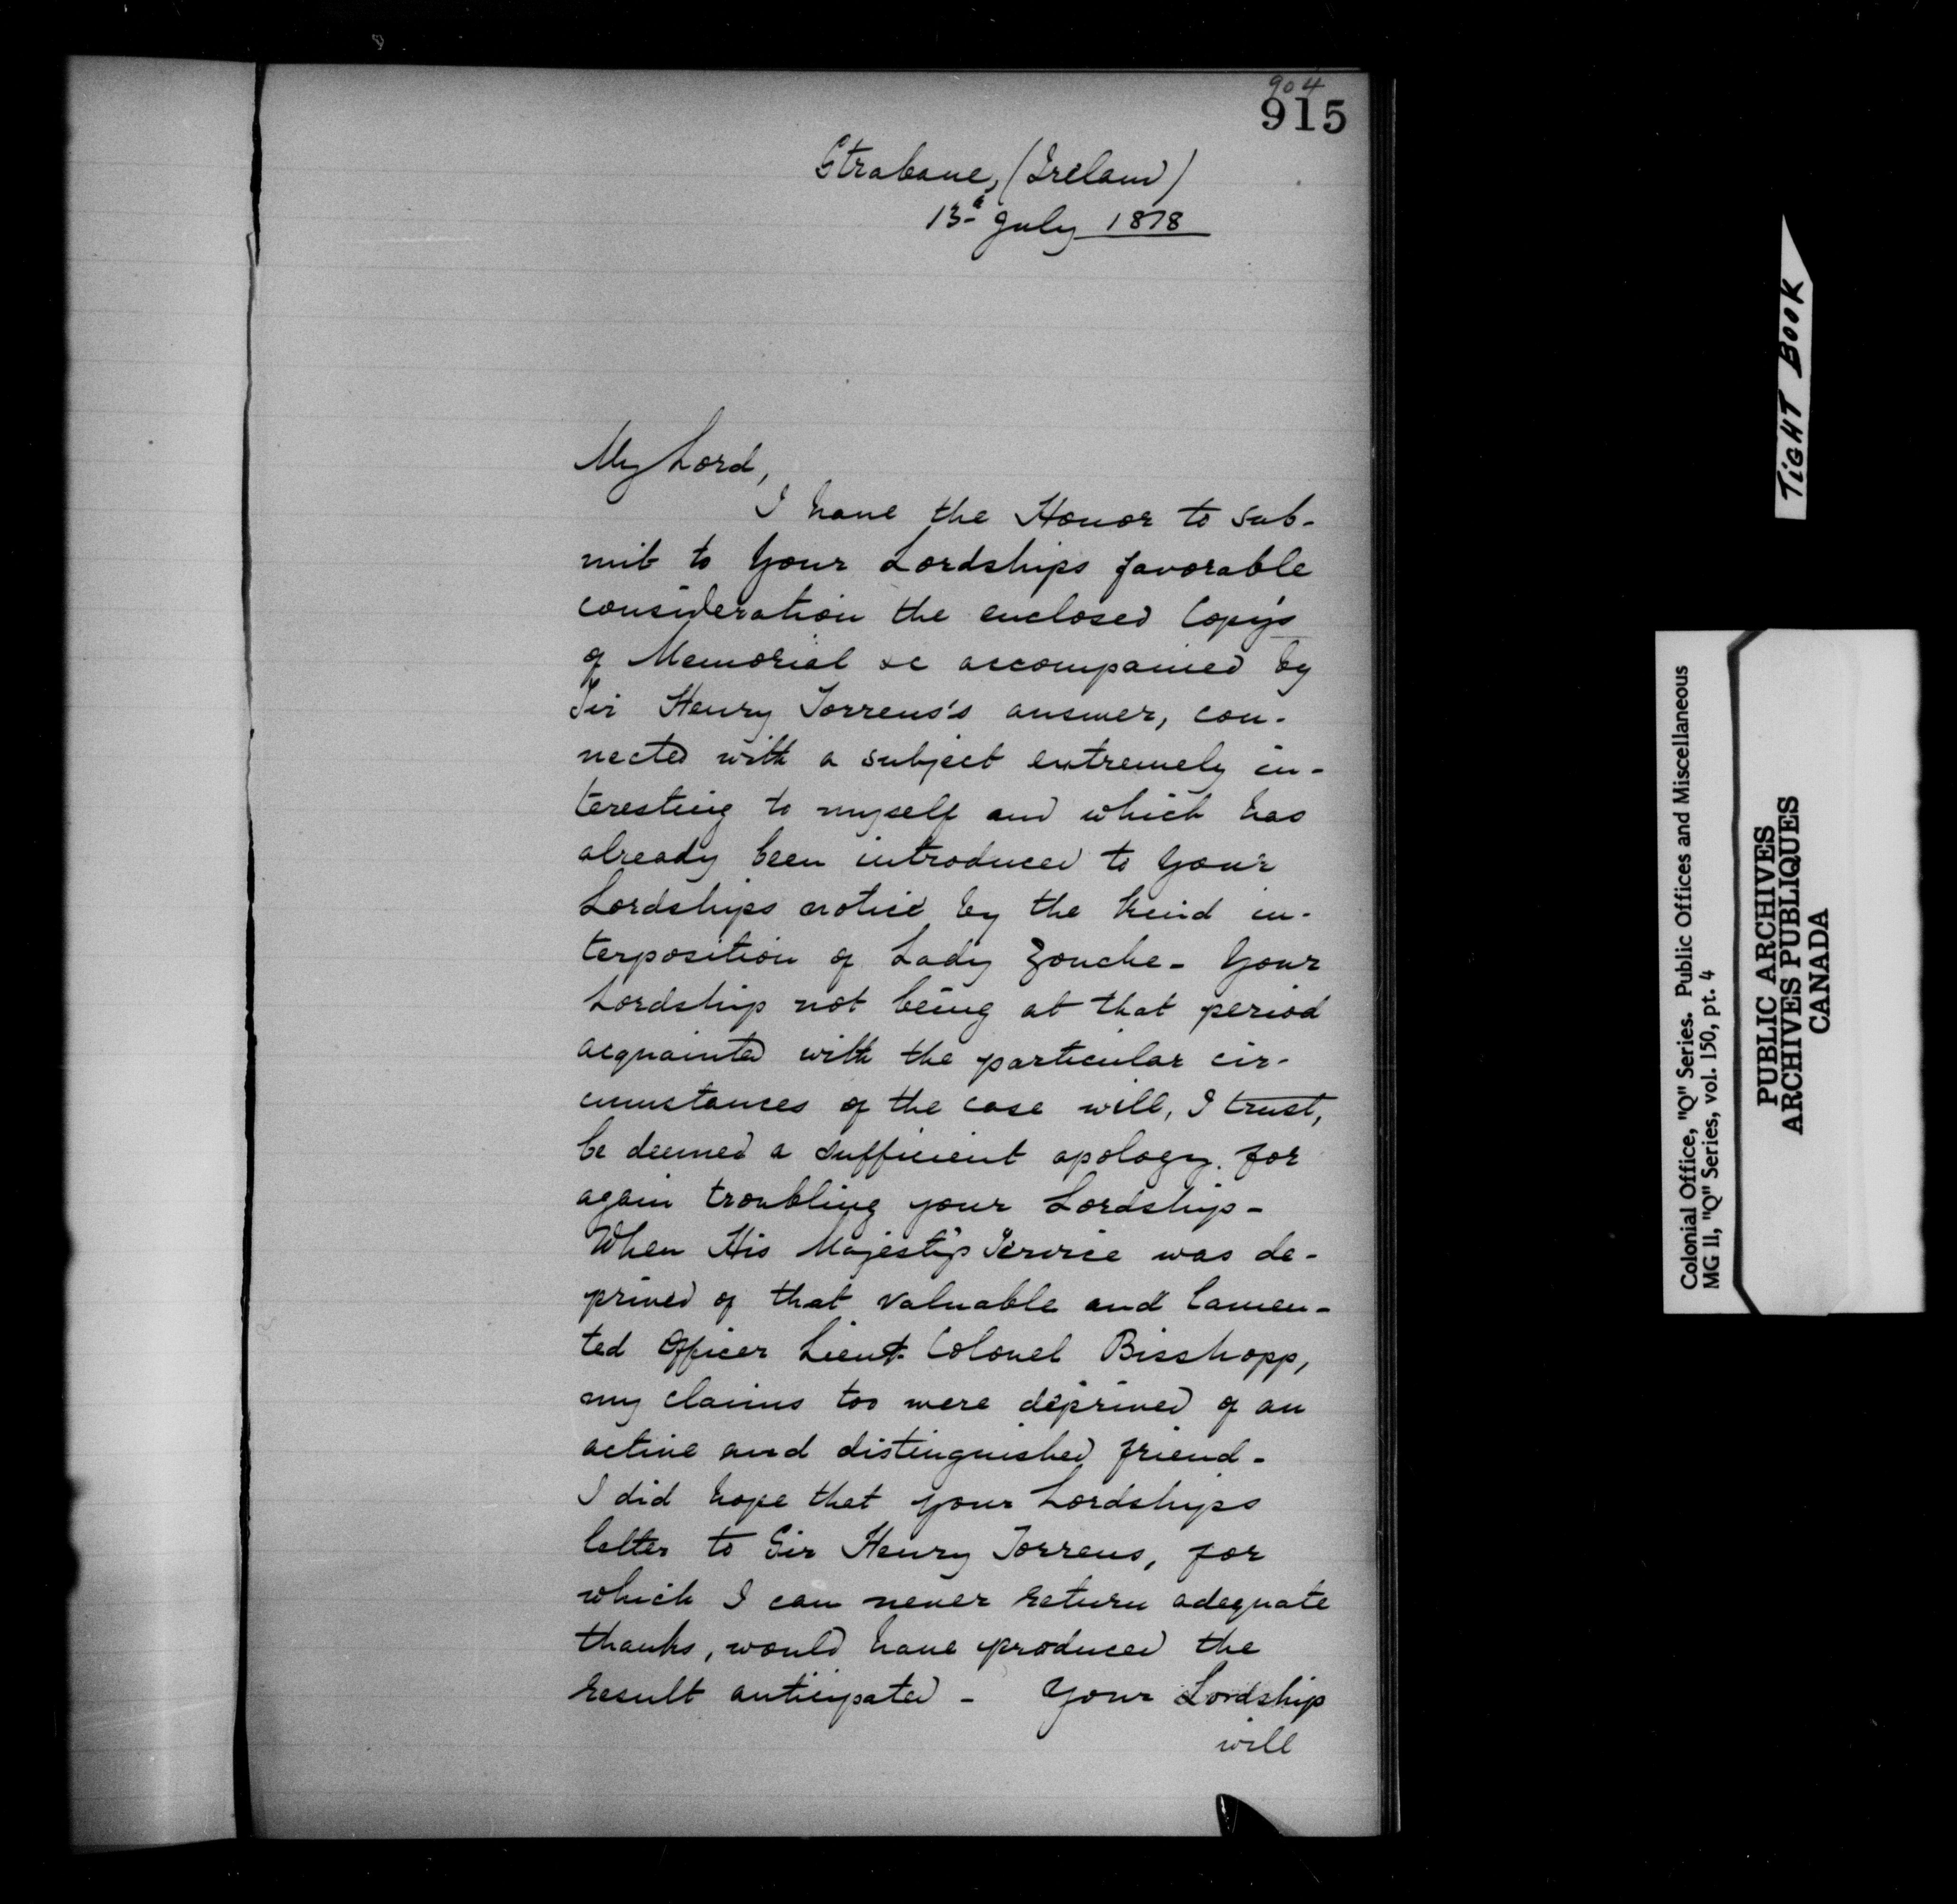 904
915
Strabane, (Ireland)
13th July 1818
My Lord,
I have the Honor to sub-
mit to Your Lordships favorable
consideration the enclosed Copy's
of Memorial &c accompanied by
Sir Henry Torrens's answer, con-
nected with a subject extremely in-
teresting to myself and which has
already been introduced to Your
Lordships notice by the kind in-
terposition of Lady Zouche - Your
Lordship not being at that period
acquainted with the particular cir-
cumstances of the case will, I trust,
be deemed a sufficient apology for
again troubling your Lordship -
When His Majesty's Service was de-
prived of that valuable and lamen-
ted Officer Lieut. Colonel Bisshopp,
my claims too were deprived of an
active and distinguished friend -
I did hope that your Lordships
letter to Sir Henry Torrens, for
which I can never return adequate
thanks, would have produced the
result anticipated - Your Lordship
will
TIGHT BOOK
Colonial Office, "Q" Series. Public Offices and Miscellaneous
MG 11, "Q" Series, vol. 150, pt. 4
PUBLIC ARCHIVES
ARCHIVES PUBLIQUES
CANADA